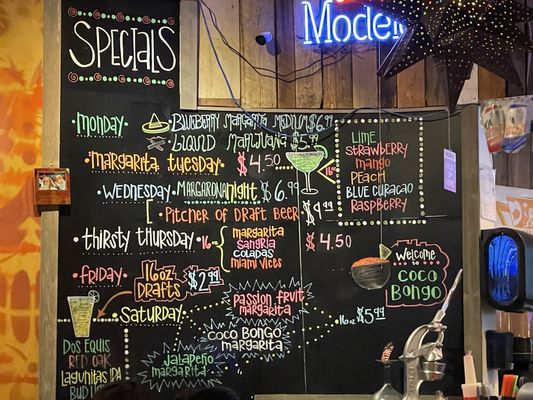 Modelo
SPECIALS
MONDAY
BLUEBERRY MARGARITA MEDIUM $6.99
LIQUID MARIJUANA $5.99
MARGARITA TUESDAY $4.50
16oz
LIME
STRAWBERRY
MANGO
PEACH
BLUE CURACAO
RASPBERRY
WEDNESDAY MARGARONA NIGHT $6.99
PITCHER OF DRAFT BEER $9.99
THIRSTY THURSDAY 16oz
MARGARITA
SANGRIA
COLADAS
MIAMI VICETS
$4.50
FRIDAY
16oz
DRAFTS
$2.99
SATURDAY
PASSION FRUIT
MARGARITA
COCO BONGO
MARGARITA
JALAPEÑO
MARGARITA
16oz $5.99
WELCOME
TO
COCO
BONGO
DOS EQUIS
RED OAK
LAGUNITAS IPA
BUD